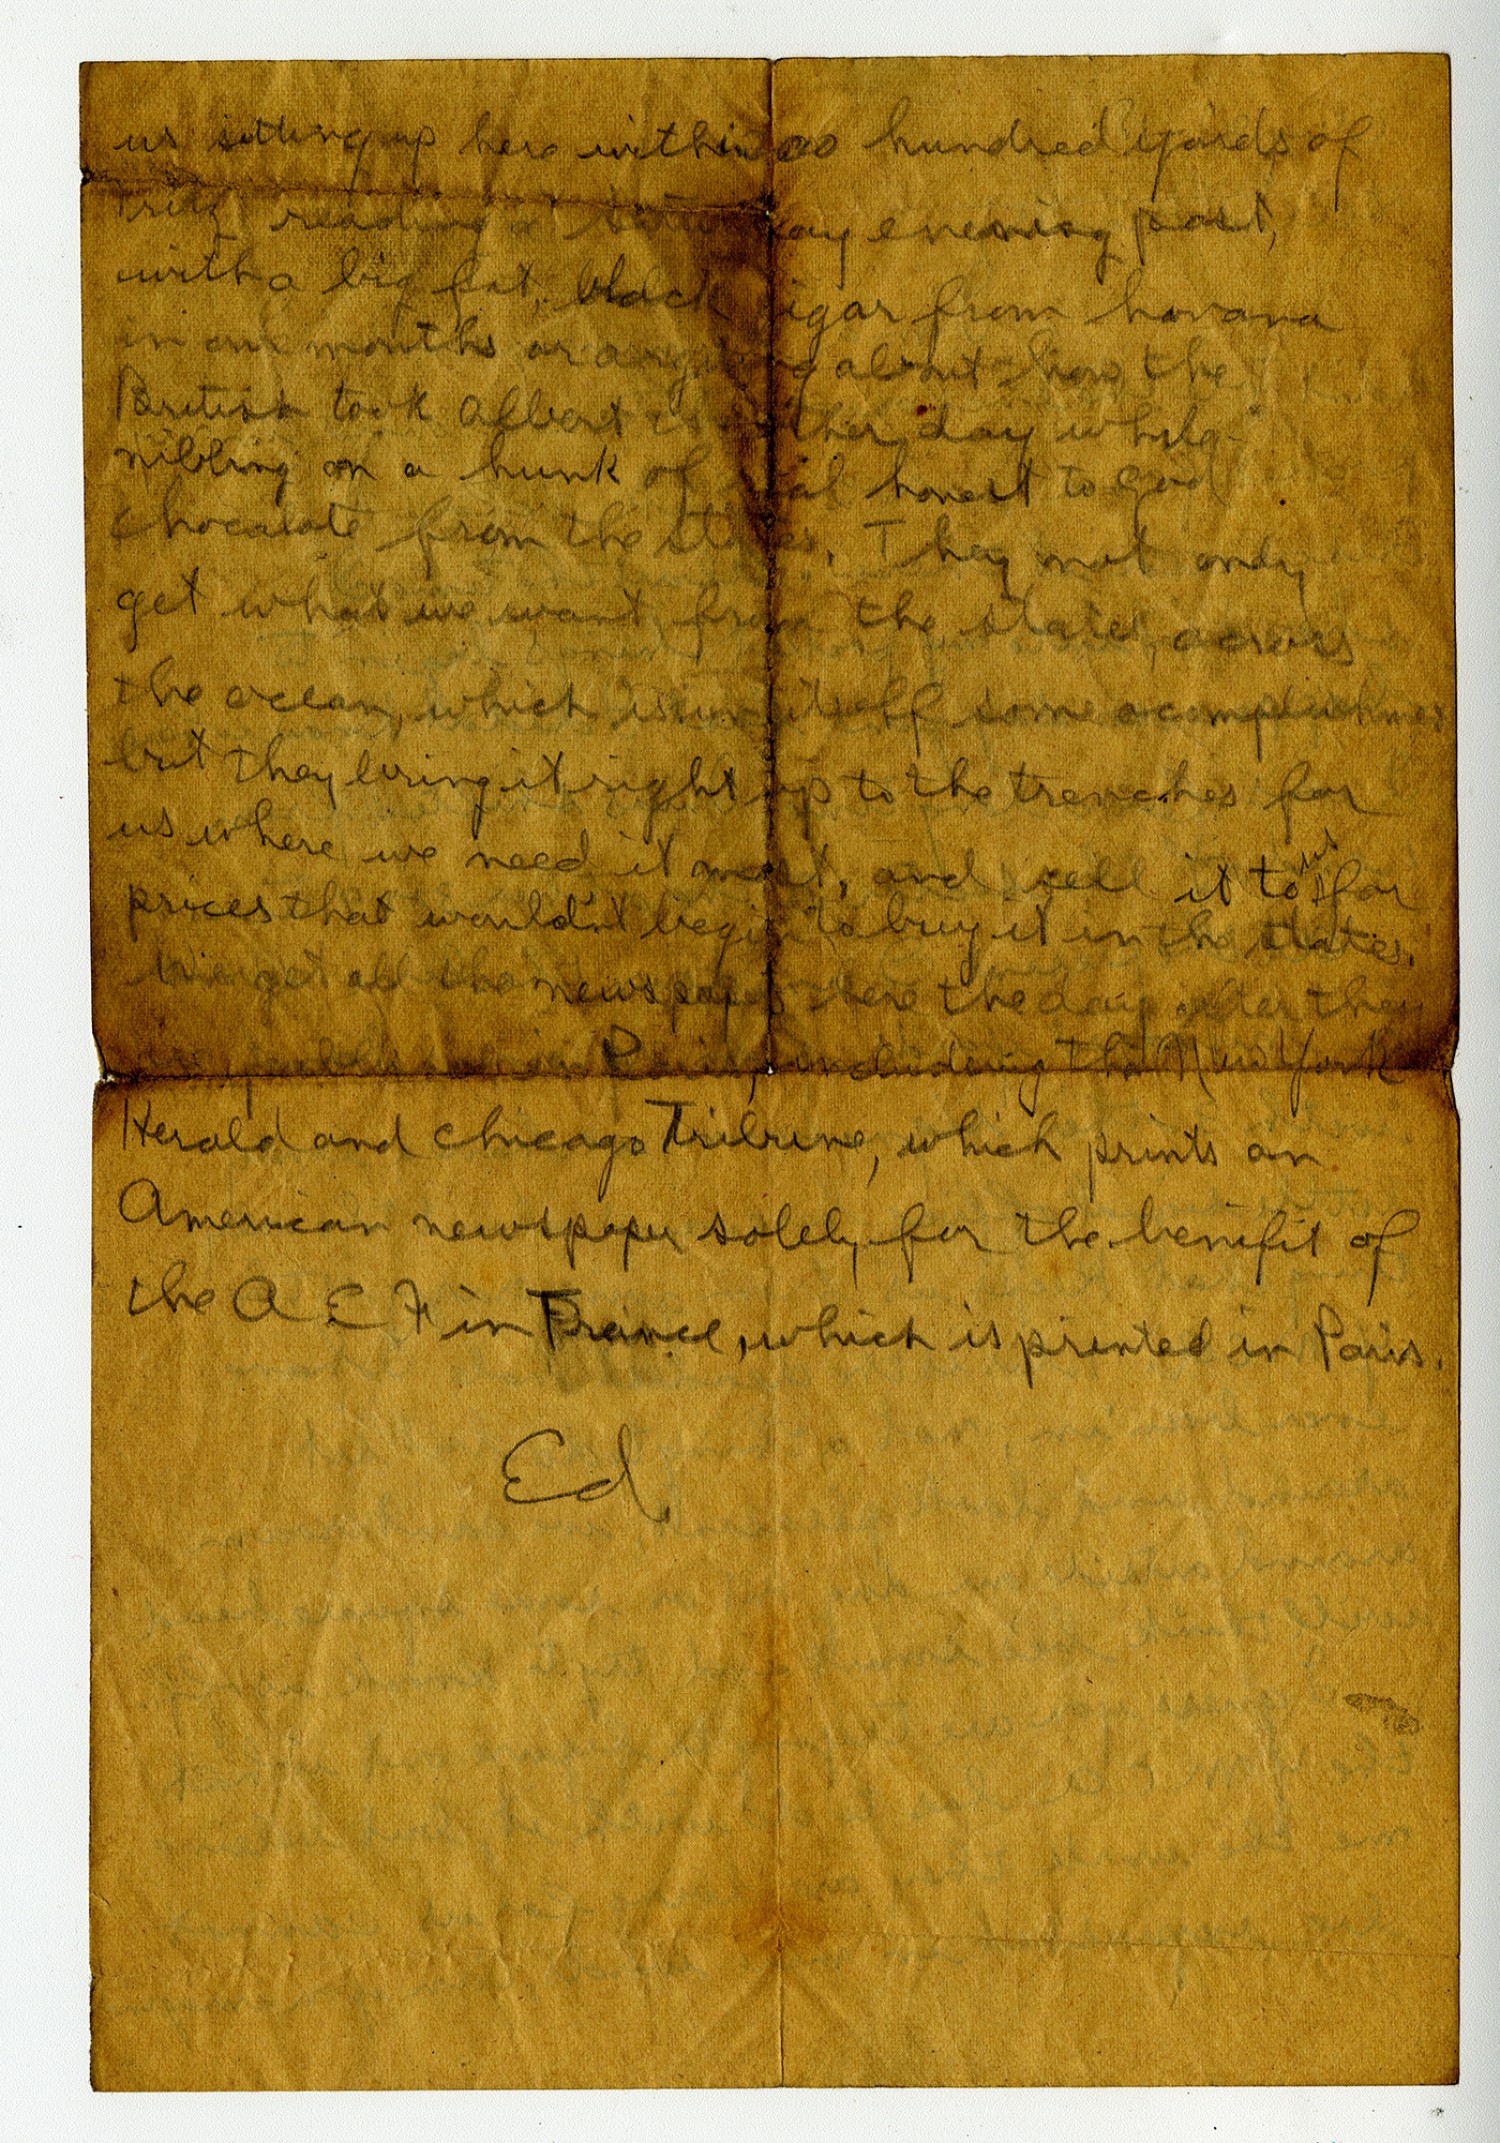 us sitting up here within oo hundred yards of
Fritz reading a saturday evening post,
with a big fat, black cigar from havana
in our mouths or argueing about how the
British took Albert the other day while
nibbling on a hunk of real honest to god
chocalate from the states. They not only
get what we want from the states, across
the ocean, which is in itself some acomplishmet
but they bring it right up to the trenches for
us where we need it most, and sell it to us for
prices that would'nt begin to buy it in the states.
We get all the newspapers here the day after they
are published in Paris, including the New York
Herald and Chicago Tribune, which prints an
American newspaper solely for the benifit of
the A E F in France, which is printed in Paris.
Ed.